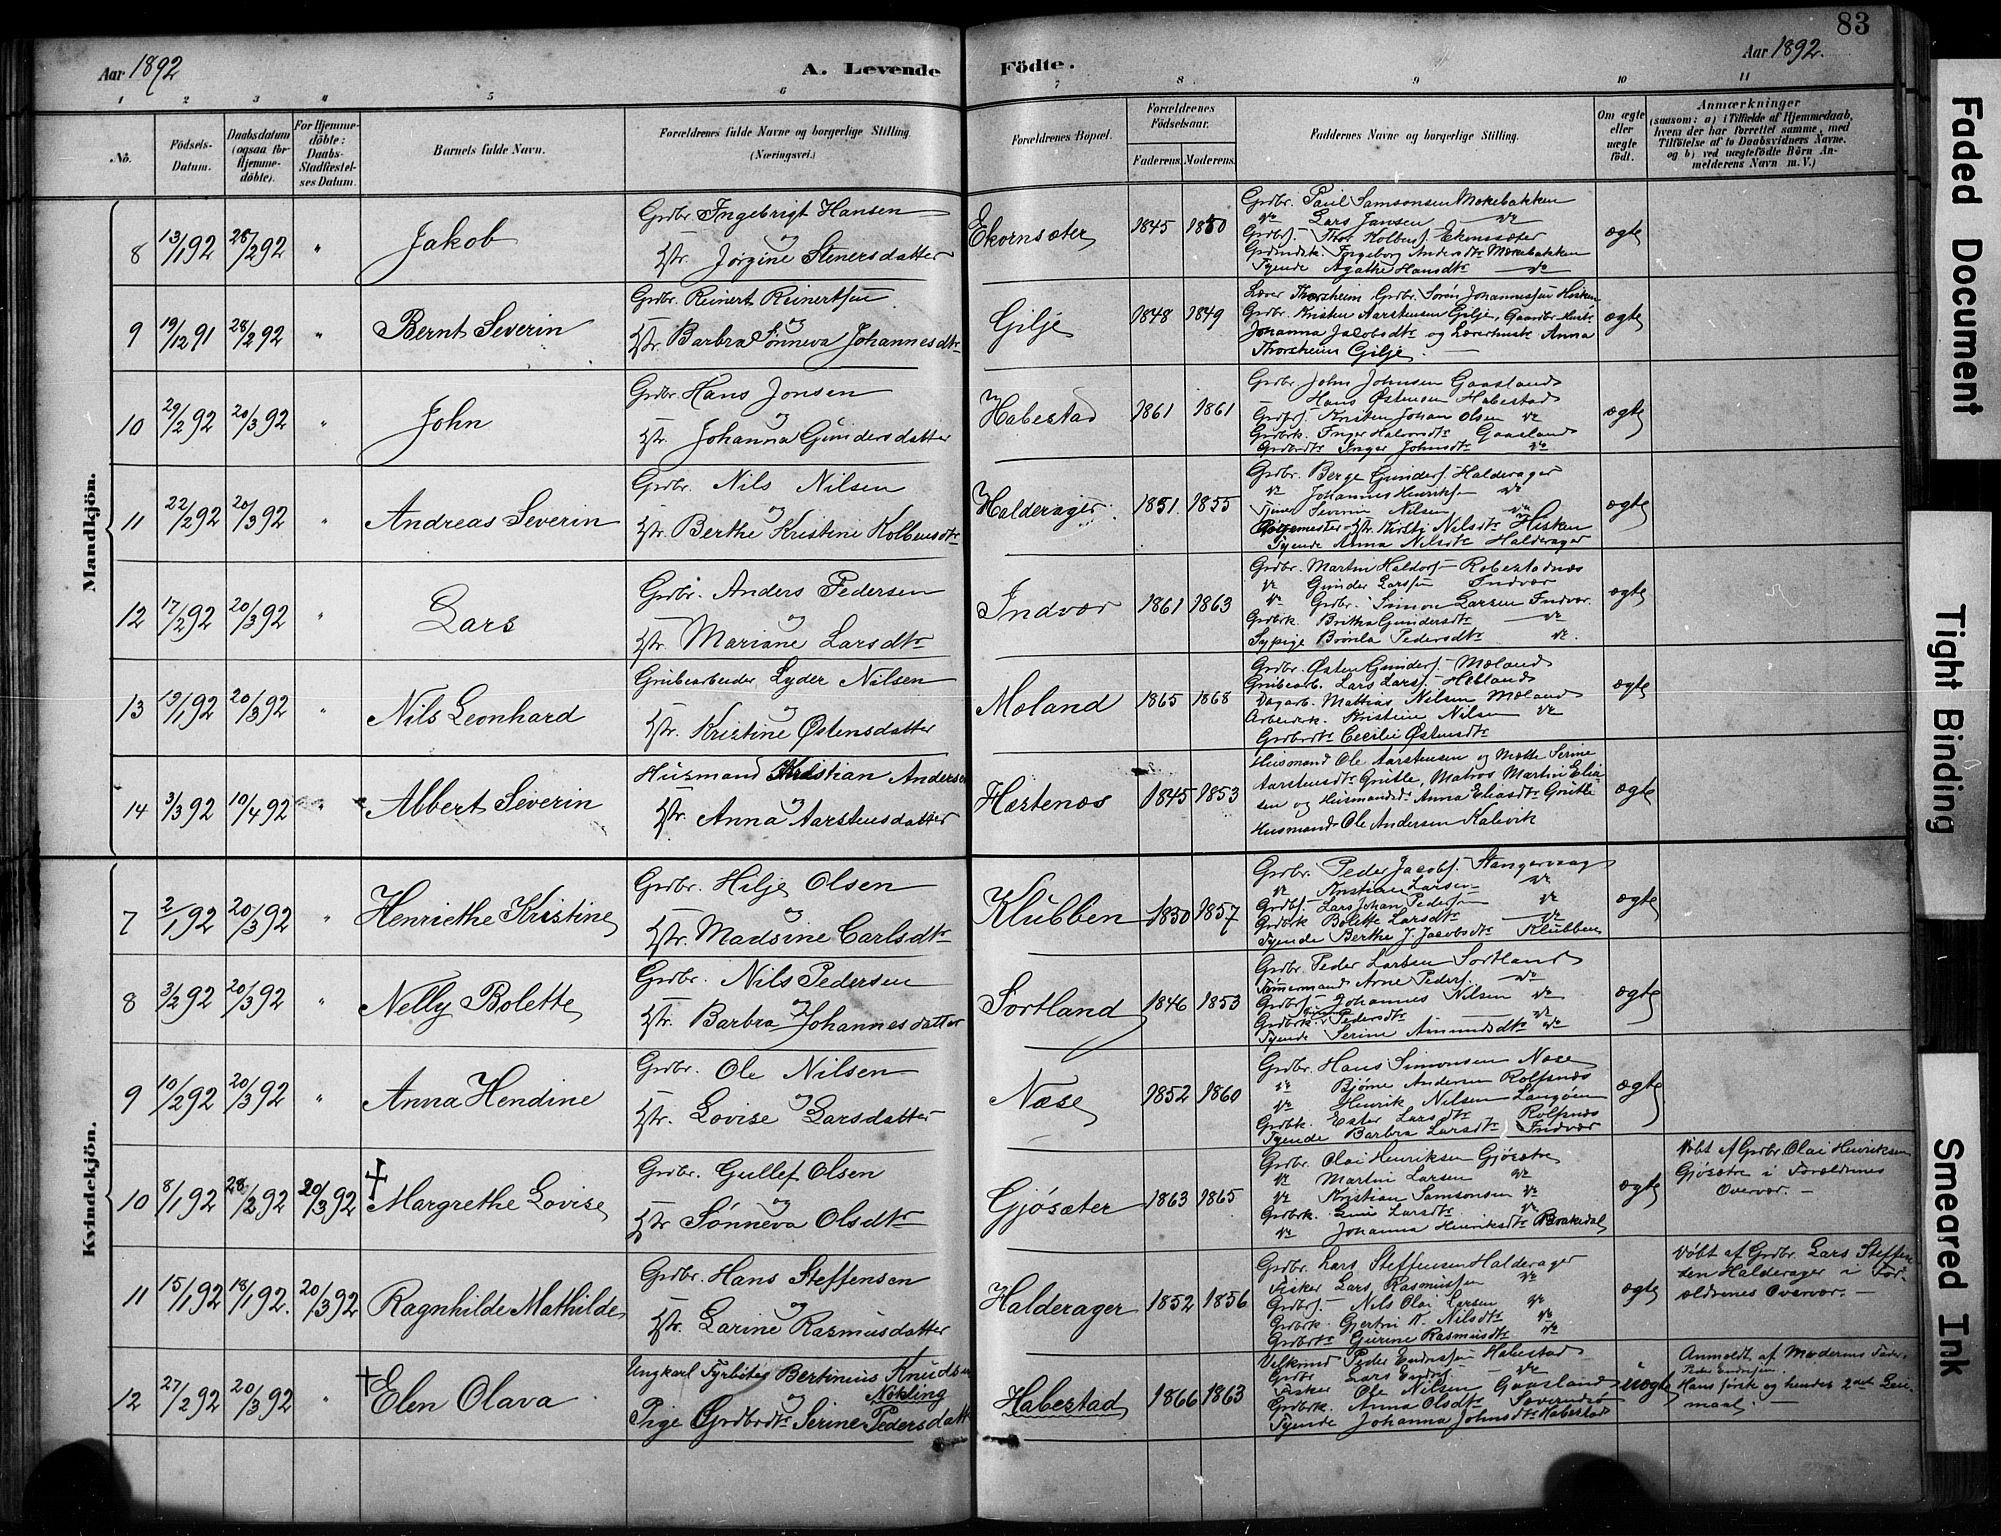 83
Aar 1892
A. Levende
Födte.
Aar 1892.
1 2 3 4 5 6 7 8 9 10 11
No.
Födsels-Datum.
Daabsdatum (ogsaa for Hjemme-döbte).
For Hjemme-döbte: Daabs-Stadfæstel-ses Datum.
Barnets fulde Navn.
Forældrenes fulde Navne og borgerlige Stilling (Næringsvei.)
Forældrenes Bopæl.
Forældrenes Födselsaar.
Faderens. Moderens.
Faddernes Navne og borgerlige Stilling.
Om ægte eller uægte födt.
Anmærkninger
(saasom: a) i Tilfælde af Hjemmedaab, hvem der har forrettet samme, med Tilföielse af to Daabsvidners Navne. og b) ved uægtefödte Börn An-melderens Navn m. V.)
Mandkjön.
8 13/1 92 28/2 92 " Jakob
Grdbr. Ingebrigt Hansen
og
Hstr. Jørgine Stenersdatter
Ekornsæter 1845 1850
Grdbr. Paul Samsonsen Møkebakken
do Lars Jansen do
Grdbrs. Thor Kolbens. Ekornsæter
Tyende Agathe Hansdtr do
ægte
9 19/12 91 28/2 92 " Bernt Severin
Grdbr. Reinert Reinertsen
og
Hstr. Barbra Sønneva Johannesdtr
Gilje 1848 1849
Lærer Thorsheim Grdbr. Søren Johannessen Hisken
Grdbr. Kristen Aarstensen Gilje, Gaardbr. Hustr.
Johanna Jacobsdtr og Lærerhustr. Anna
Thorsheim Gilje.
ægte
10 29/2 92 20/3 92 " John
Grdbr. Hans Jonsen
og
Hstr. Johanna Gundersdatter
Habestad 1861 1861
Grdbr. John Johnsen Gaasland
Hans Østensen Habestad
Grdbrs. Kristen Johan Olsen do
Grdbrk. Inger Halvorsdtr Gaasland
Grdbrdtr Inger Johnsdtr do
ægte
11 22/2 92 20/3 92 " Andreas Severin
Grdbr. Nils Nilsen
og
Hstr. Berthe Kristine Kolbensdtr
Halderager. 1851. 1855
Grdbr. Berge Gunders. Halderager
do Johannes Henriks. do
Severin Nilsen do
Hstr. Kirsti Nilsdtr Hisken
Tyende Anna Nilsdtr Halderager
ægte
12 17/2 92 20/3 92 " Lars
Grdbr. Anders Pedersen
og
Hstr. Mariane Larsdtr
Indvær 1861 1863
Grdbr. Martin Haldors. Robestadnæs
do Gunder Larssen Indvær
do Grdbr. Simon Larsen Indvær.
Grdbrk. Britha Gundersdtr do
Sypige Brønla Pedersdtr do.
ægte
13 19/1 92 20/3 92 " Nils Leonhard
Grubearbeider Lyder Nilsen
og
Hstr. Kristine Østensdatter
Moland 1865 1868
Grdbr. Østen Gunders. Mæland
Grubearb. Lars Lars. Hebland
Dagarb. Mathias Nilsen Mæland
Arbeiderk. Kristine Nilsen do
Grdbrdtr Cecilie Østensdtr
ægte
14 3/3 92 10/4 92 Albert Severin
Husmand Kristian Andersen
og
Hstr. Anna Aarstensdatter
Hærtenæs 1845 1853
Husmand Ole Aarstensen og Mette Serine
Aarstensdtr Grutle, Matros Martin Elia-
sen og Husmandsdtr Anna Eliasdtr Grutle
Husmand Ole Andersen Kalevik
ægte
Kvindekjön.
7 2/1 92 20/3 92 " Henriethe Kristine
Grdbr. Hilje Olsen
og
Hstr. Madsine Carlsdtr
Klubben 1850 1857
Grdbr. Peder Jacobs. Stangervaag
do Kristian Larsen do
Grdbrs. Lars Johan Pedersen do
Grdbrk Bolette Larsdtr do
Tyende Berthe J. Jacobsdtr Klubben
ægte
8 3/2 92 20/3 92 " Nelly Bolette
Grdbr. Nils Pedersen
og
Hstr. Barbra Johannesdatter
Sortland 1846 1853
Grdbr. Peder Larsen Sortland
Tømmermand Arne Peders. do
Grdbrs. Johannes Nilsen do
Grdbrk. Pedersdtr do
Tyende Serine Amundsdtr do
ægte
9 10/2 92 20/3 92 " Anna Hendine
Grdbr. Ole Nilsen
og
Hstr. Lovise Larsdatter
Næse 1852 1860
Grdbr. Hans Simonsen Næse
do Bjørne Andersen Rolfsnæs
do Henrik Nilsen Langøen
Grdbk. Ester Larsdtr Rolfsnæs
Tyende Barbra Larsdtr Indvær
ægte
10 8/1 92 28/2 92 20/3 92 † Margrethe Lovise
Grdbr. Gullef Olsen
og
Hstr Sønneva Olsdtr
Gjøsæter 1863 1865
Grdbr. Olai Henriksen Gjøsætre
do Martin Larsen do
do Kristian Samsonsen do
Grdbrk. Larsdtr do
do Johanna Henriksdtr Brakedal
ægte
Døbt af Grdbr. Olai Henriksen
Gjøsætre i Forældrenes
Overvær. —
11 15/1 92 18/1 92. 20/3 92 Ragnhilde Mathilde
Grdbr. Hans Steffensen
og
Hstr. Larine Rasmusdatter
Halderager 1852 1856
Grdbr. Lars Steffensen Halderager
Fisker Lars Rasmussen do
Grdbrs. Nils Olai Larsen do
Grdbrk. Gjertrü N. Nilsdtr do
Grdbrdtr Gurine Rasmusdtr do
ægte
Døbt af Grdbr. Lars Steffen-
sen Halderager i For-
ældrenes Overvær. —
12 27/2 92 20/3 92 " † Elen Olava
Ungkarl Fyrbøter Bertinius Knudsen
Nökling
og
Pige Grdbrdtr Serine Pedersdatter
Habestad 1866 1863
Peder Endresen Habestad
Grdbr Lars Endres. do
Fisker Ole Nilsen Gaasland
Grdbrk. Anna Olsdtr
Tyende Johanna Johnsdtr Habestad
uægte
Anmeldt af Moderens Fader
Peder Endresen
Hans første og hendes 2det Lei-
maal. —
Faded Document
Tight Binding
Smeared Ink